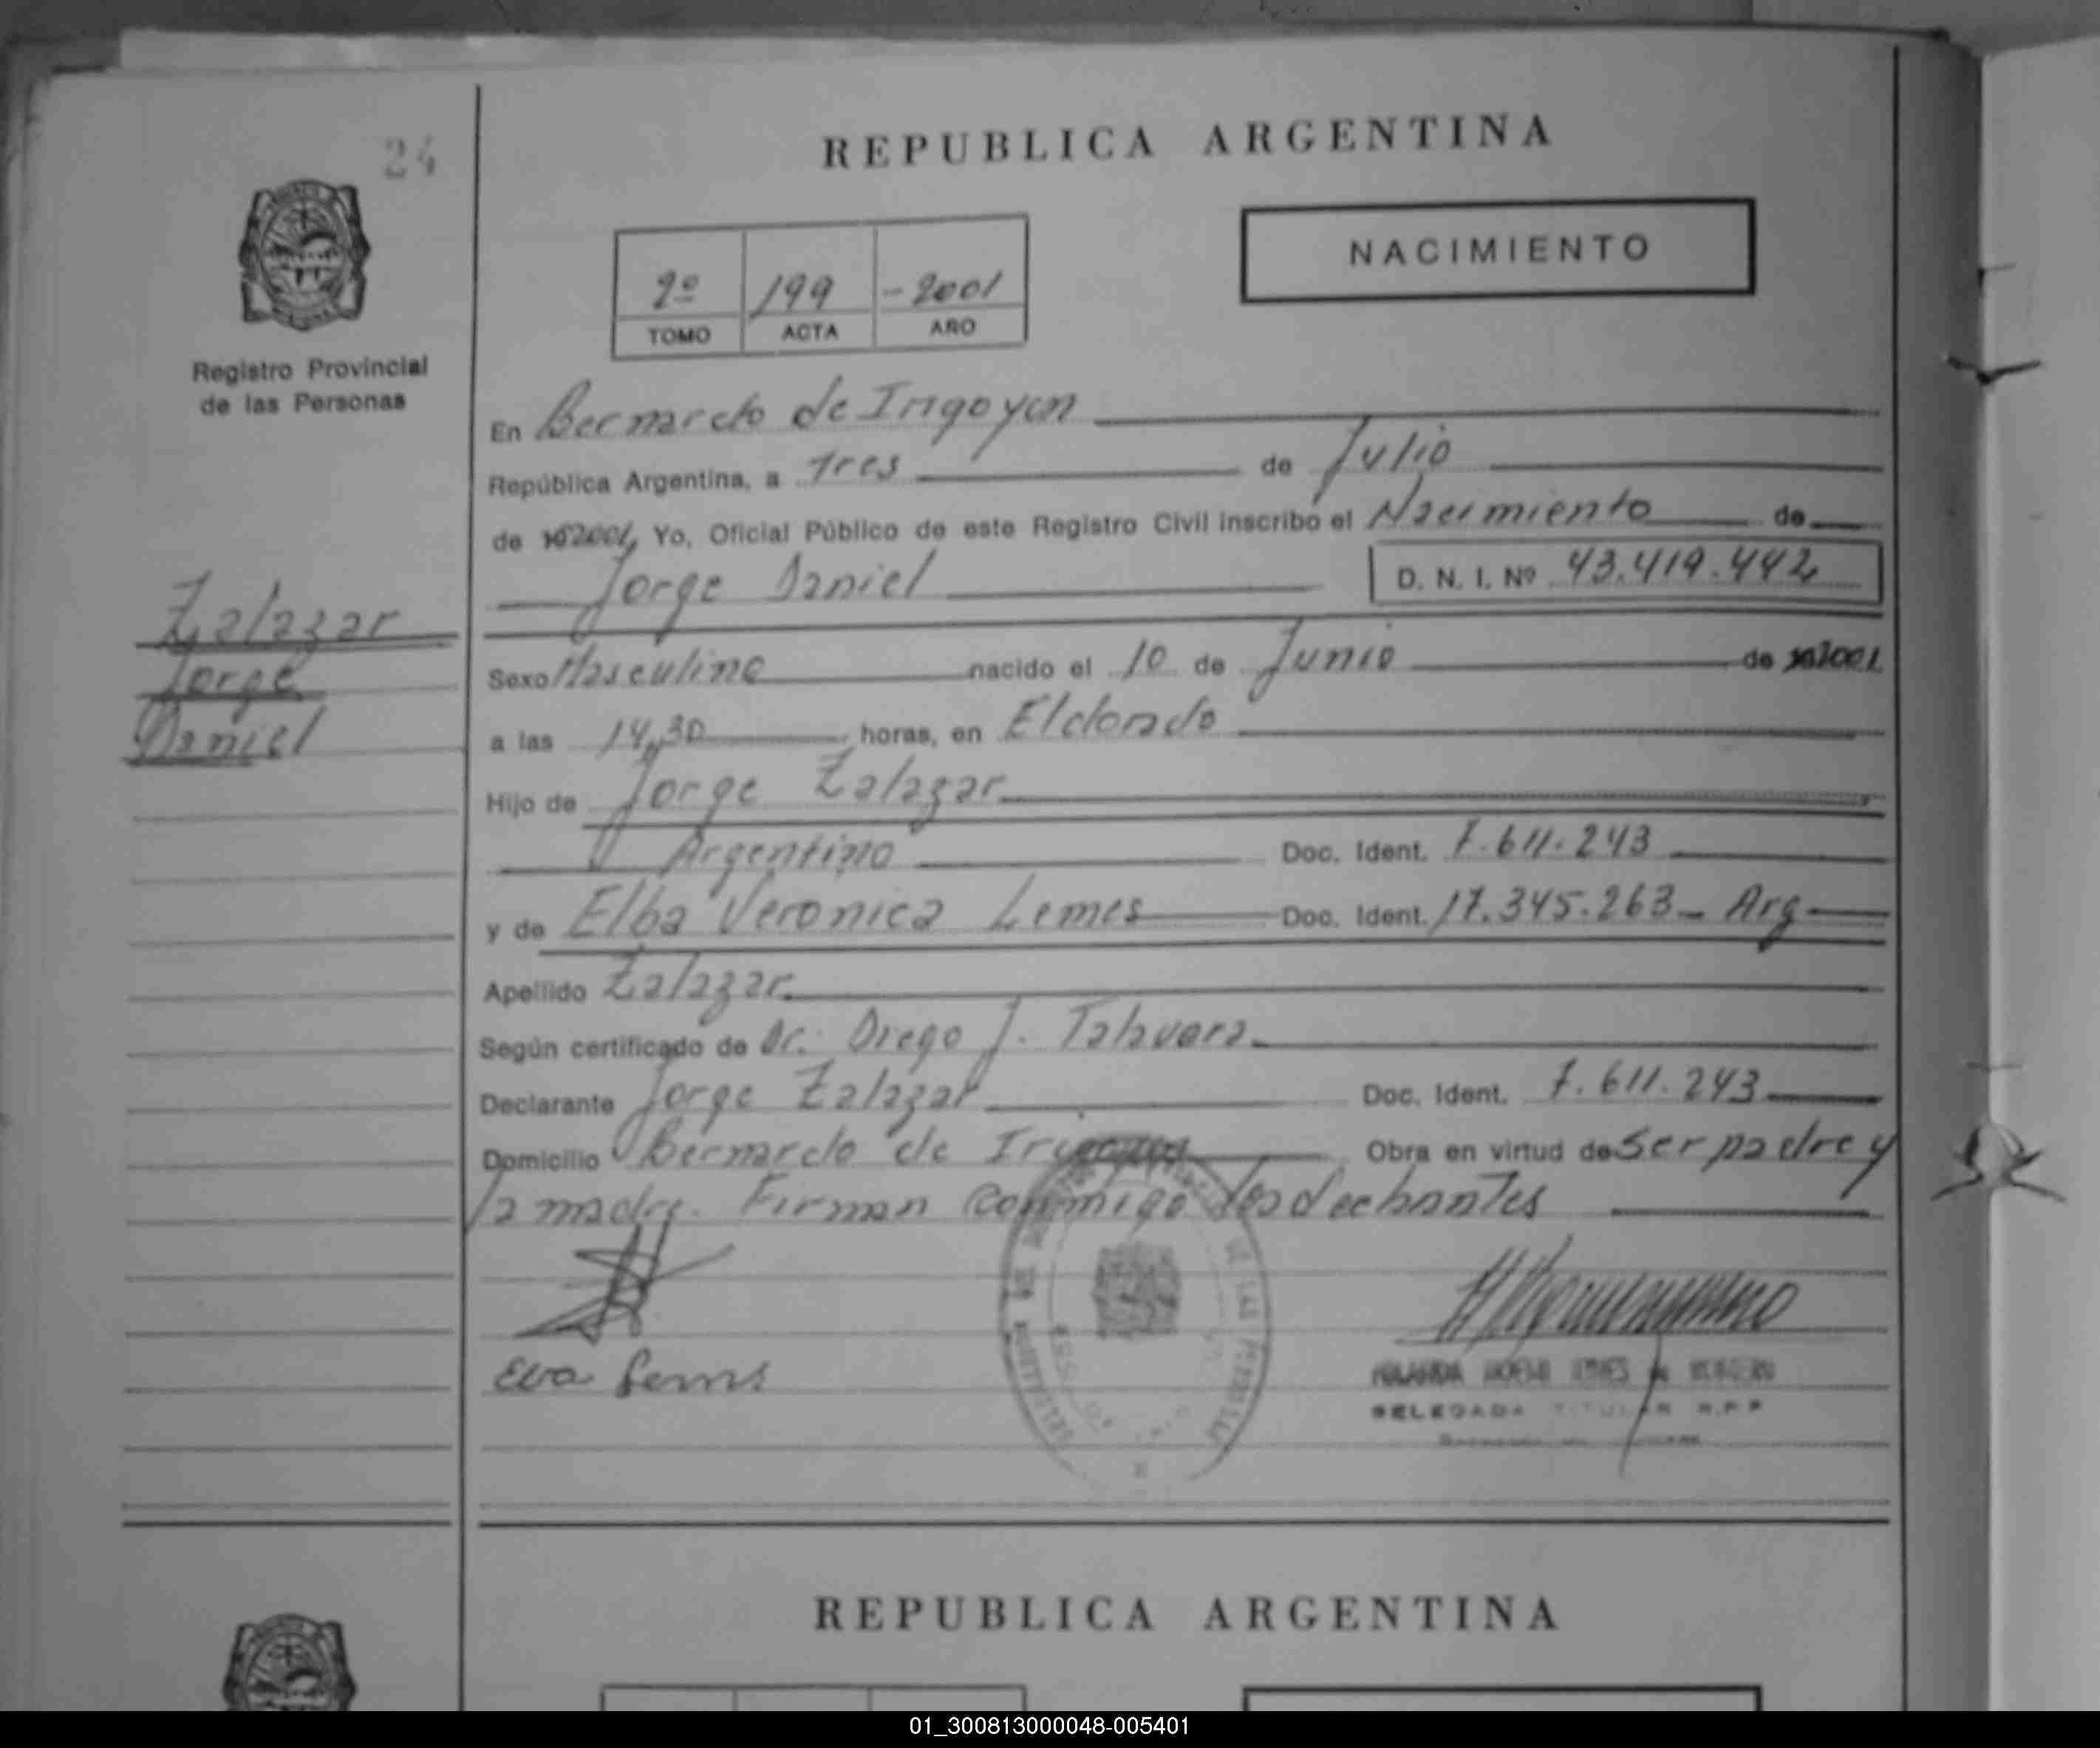 24
REPUBLICA ARGENTINA
NACIMIENTO
2º 199 -2001
TOMO ACTA AÑO
Registro Provincial
de las Personas
En Bernardo de Irigoyen
República Argentina, a Tres de Julio
de 2001, Yo, Oficial Público de este Registro Civil inscribo el Nacimiento de
Jorge Daniel D. N. I. Nº 43.419.442
Zalazar
Jorge
Daniel
Sexo Masculino nacido el 10 de Junio de 2001
a las 14,30 horas, en Eldorado
Hijo de Jorge Zalazar
Argentino Doc. Ident. 7.611.243
y de Elba Veronica Lemes Doc. Ident. 17.345.263 - Arg
Apellido Zalazar
Según certificado de Dr. Diego J. Talavera
Declarante Jorge Zalazar Doc. Ident. 7.611.243
Domicilio Bernardo de Irigoyen Obra en virtud de Ser padre y
la madre. Firman conmigo los
DE LAS
TITULAR R.P.P
REPUBLICA ARGENTINA
01_300813000048-005401